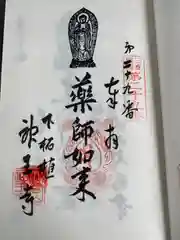 第三十九番
奉拝
藥師如来
下柘植
神王寺